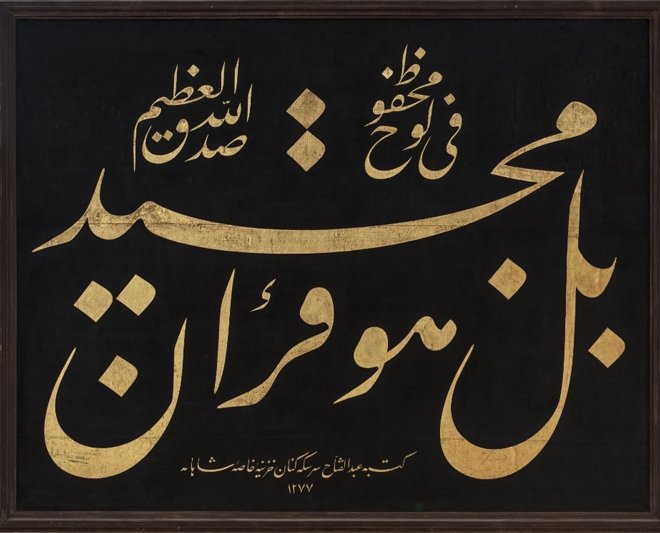 بل هو قرأن مجيد
فى لوح محفوظ
صدق الله العظيم
كتبه عبد الفتاح سرسكه كنان خزينه خاصه شاهانه
١٢٧٧